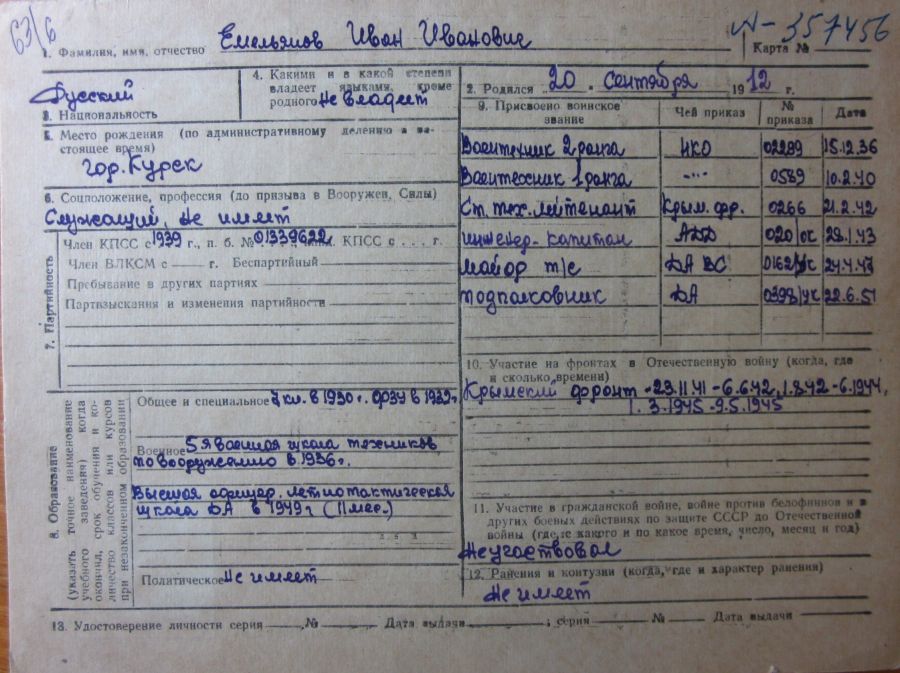 63/6
А-357456
1. Фамилия, имя, отчество Емельянов Иван Иванович
Карта №
Русский
3. Национальность
4. Какими и в какой степени
владеет языками, кроме
родного Не владеет
2. Родился 20 сентября 1912 г.
5. Место рождения (по административному делению в на-
стоящее время)
гор. Курск
6. Соцположение, профессия (до призыва в Вооружен. Силы)
Служащий, Не имеет
7. Партийность
Член КПСС с 1939 г., п. б. № 01339622, КПСС с . . . г.
Член ВЛКСМ с — г. Беспартийный
Пребывание в других партиях —
Партвзыскания и изменения партийности
8. Образование
(указать точное наименование
учебного заведения) когда
окончил, срок обучения и ко-
личество классов или курсов
при незаконченном образовании
Общее и специальное 7 кл. в 1930 г. ФЗУ в 1932 г.
Военное 5-я военная школа техников
по вооружению в 1936 г.
Высшая офицер. летнотактическая
школа ДА в 1949 г
Политическое Не имеет
9. Присвоено воинское
звание
Чей приказ
№
приказа
Дата
Воентехник 2 ранга НКО 02289 15.12.36
Воентехник 1 ранга -"- 0589 10.2.40
Ст. тех. лейтенант Крым. фр. 0266 21.2.42
инженер-капитан АДД 020/ок 28.1.43
майор т/с ДА ВС 0162/ук
подполковник ДА 0398/ук 22.6.51
10. Участие на фронтах в Отечественную войну (когда, где
и сколько времени)
Крымский фронт -23.11.41 -6.6.42, 1.8.42 -6.1944,
1.3.1945 -9.5.1945
11. Участие в гражданской войне, войне против белофиннов и в
других боевых действиях по защите СССР до Отечественной
войны (где, с какого и по какое время, число, месяц и год)
Не участвовал
12. Ранения и контузии (когда, где и характер ранения)
Не имеет
13. Удостоверение личности серия — № — Дата выдачи — ; серия — № — Дата выдачи —